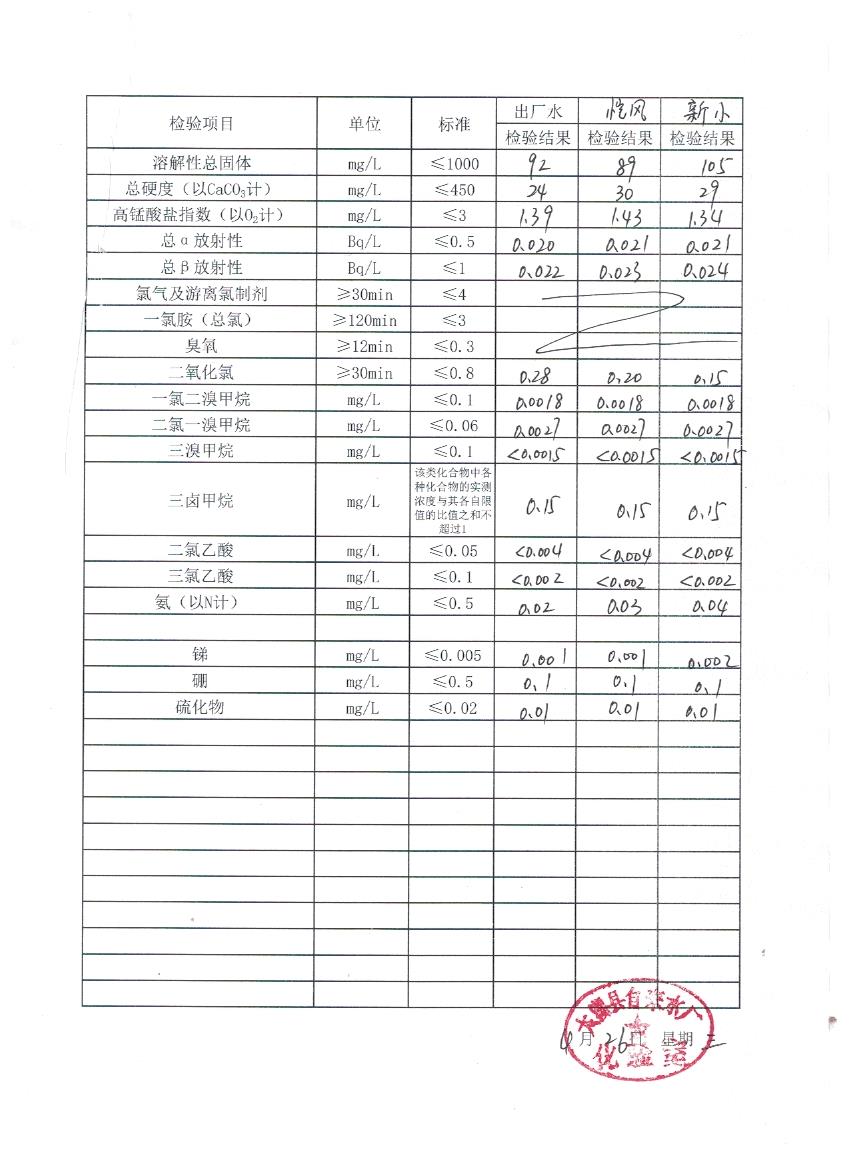 检验项目 单位 标准 出厂水 恺风 新小
检验结果 检验结果 检验结果
溶解性总固体 mg/L ≤1000 92 89 105
总硬度（以CaCO₃计） mg/L ≤450 24 30 29
高锰酸盐指数（以O₂计） mg/L ≤3 1.39 1.43 1.34
总α放射性 Bq/L ≤0.5 0.020 0.021 0.021
总β放射性 Bq/L ≤1 0.022 0.023 0.024
氯气及游离氯制剂 ≥30min ≤4
一氯胺（总氯） ≥120min ≤3
臭氧 ≥12min ≤0.3
二氧化氯 ≥30min ≤0.8 0.28 0.20 0.15
一氯二溴甲烷 mg/L ≤0.1 0.0018 0.0018 0.0018
二氯一溴甲烷 mg/L ≤0.06 0.0027 0.0027 0.0027
三溴甲烷 mg/L ≤0.1 <0.0015 <0.0015 <0.0015
三卤甲烷 mg/L 该类化合物中各
种化合物的实测
浓度与其各自限
值的比值之和不
超过1 0.15 0.15 0.15
二氯乙酸 mg/L ≤0.05 <0.004 <0.004 <0.004
三氯乙酸 mg/L ≤0.1 <0.002 <0.002 <0.002
氨（以N计） mg/L ≤0.5 0.02 0.03 0.04
锑 mg/L ≤0.005 0.001 0.001 0.002
硼 mg/L ≤0.5 0.1 0.1 0.1
硫化物 mg/L ≤0.02 0.01 0.01 0.01
县自来水厂
4月26日 星期三
化验室